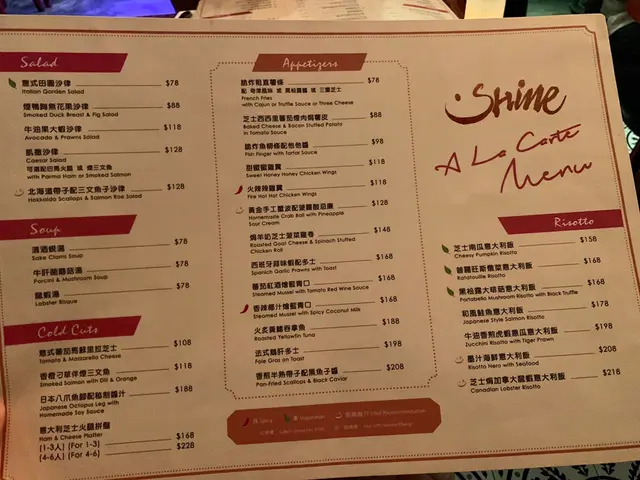 Salad
意式田園沙律 $78
Italian Garden Salad
煙鴨胸無花果沙律 $88
Smoked Duck Breast & Fig Salad
牛油果大蝦沙律 $118
Avocado & Prawns Salad
凱撒沙律 $128
Caesar Salad
可選配巴馬火腿 或 煙三文魚
with Parma Ham or Smoked Salmon
北海道帶子配三文魚子沙律 $128
Hokkaido Scallops & Salmon Roe Salad
Soup
清酒蜆湯 $78
Sake Clams Soup
牛肝菌蘑菇湯 $78
Porcini & Mushroom Soup
龍蝦湯 $78
Lobster Bisque
Cold Cuts
意式番茄馬蘇里拉芝士 $108
Tomato & Mozzarella Cheese
香橙刁草伴煙三文魚 $118
Smoked Salmon with Dill & Orange
日本八爪魚腳配秘制醬汁 $188
Japanese Octopus Leg with
Homemade Soy Sauce
意大利芝士火腿拼盤
Ham & Cheese Platter
(1-3人) (For 1-3) $168
(4-6人) (For 4-6) $228
Appetizers
脆炸粗直薯條 $78
French Fries
with Cajun or Truffle Sauce or Three Cheese
芝士西西里番茄煙肉焗薯皮 $88
Baked Cheese & Bacon Stuffed Potato
in Tomato Sauce
脆炸魚柳條配他他醬 $98
Fish Finger with Tartar Sauce
甜蜜蜜雞翼 $118
Sweet Honey Honey Chicken Wings
火辣辣雞翼 $118
Fire Hot Hot Chicken Wings
$128
Homemade Crab Ball with Pineapple
Sour Cream
焗羊奶芝士菠菜雞卷 $148
Roasted Goat Cheese & Spinach Stuffed
Chicken Roll
西班牙蒜味蝦配多士 $168
Spanich Garlic Prawns with Toast
番茄紅酒燴藍青口 $168
Steamed Mussel with Tomato Red Wine Sauce
香辣椰汁燴藍青口 $168
Steamed Mussel with Spicy Coconut Milk
火炙黃鰭吞拿魚 $188
Roasted Yellowfin Tuna
法式鵝肝多士 $198
Foie Gras on Toast
香煎半熟帶子配黑魚子醬 $208
Pan-Fried Scallops & Black Caviar
Shine
A La Carte
Menu
Risotto
芝士南瓜意大利飯 $158
Cheesy Pumpkin Risotto
普羅旺斯燉菜意大利飯 $168
Ratatouille Risotto
黑松露大啡菇意大利飯 $168
Portabella Mushroom Risotto with Black Truffle
和風鮭魚意大利飯 $178
Japanese Style Salmon Risotto
牛油香煎虎蝦翠瓜意大利飯 $198
Zucchini Risotto with Tiger Prawn
墨汁海鮮意大利飯 $208
Risotto Nero with Seafood
芝士焗加拿大龍蝦意大利飯 $218
Canadian Lobster Risotto
辣 Spicy
素 Vegetarian